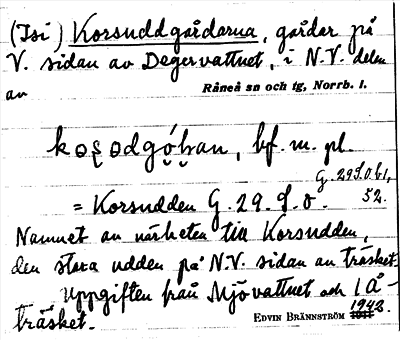 (Isi) Korsuddgårdarna, gårdar på
V. sidan av Degervattnet, i N.V. delen
av
Råneå sn och tg, Norrb. l.
bf. m. pl.
G. 29 J.o.b1,
52.
= Korsudden G. 29. J. o.
Namnet av närheten till Korsudden,
den stora udden på N.V. sidan av träsket.
Uppgiften från Mjövattnet och 1 Å-
träsket.
EDVIN BRÄNNSTRÖM 1942.